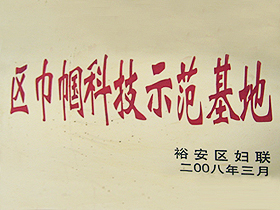 区巾帼科技示范基地
裕安区妇联
二00八年三月